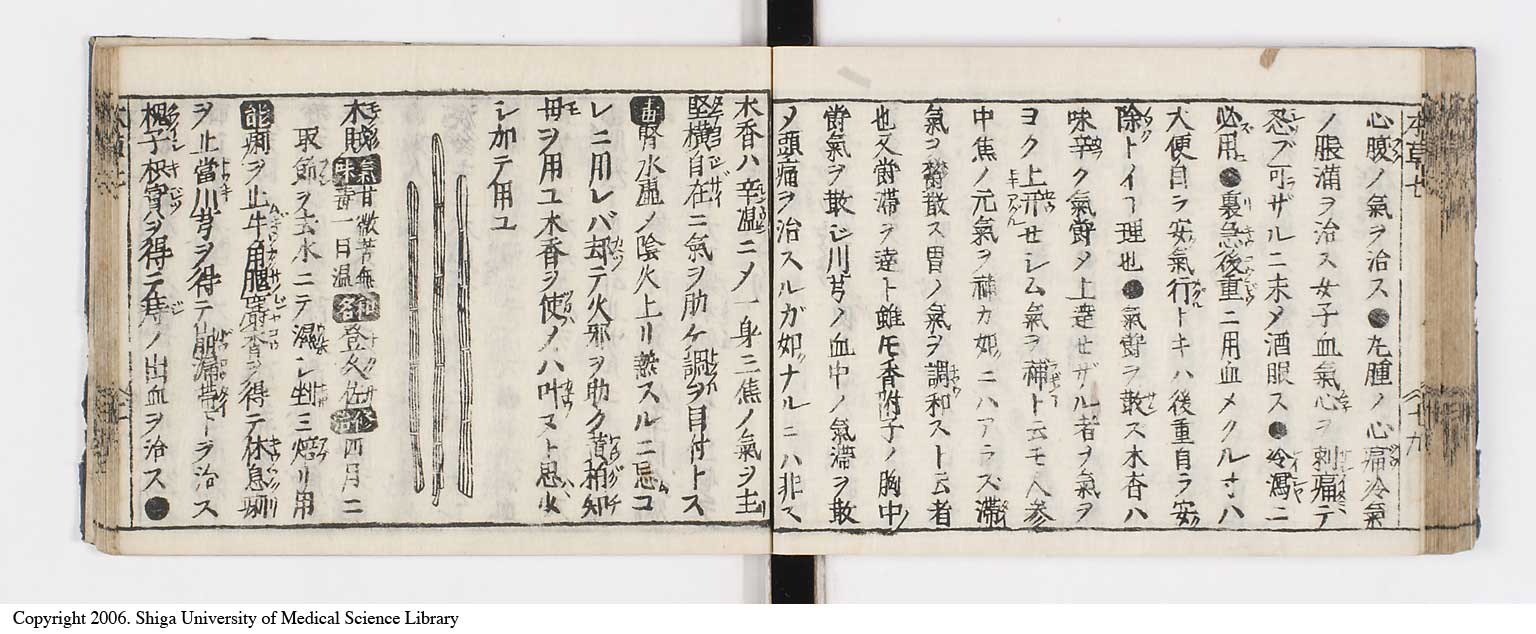 心腹ノ氣ヲ治ス●九腫ノ心痛冷氣
ノ脹満ヲ治ス女子血氣心ヲ刺痛テ
忍ブ可ザルニ末メ酒服ス●冷瀉ニ
必用●裏急後重ニ用血メクルトキハ
大便自ラ安氣行トキハ後重自ラ安
除トイフ理也●氣欝ヲ散ス木香ハ
味辛ク氣欝メ上達セザル者ヲ氣ヲ
ヨク上升セシム氣ヲ補ト云モ人参
中焦ノ元氣ヲ補カ如ニハアラズ滞
氣ヲ發散ス胃ノ氣ヲ調和スト云者
也又欝滞ヲ達ト雖モ香附子ノ胸中
欝氣ヲ散ジ川芎ノ血中ノ氣滞ヲ散
メ頭痛ヲ治スルガ如ナルニハ非ス
木香ハ辛温ニメ一身三焦ノ氣ヲ主リ
竪横自在ニ氣ヲ助ケ調ヲ目付トス
毒腎水虚ノ陰火上リ熱スルニ忌コ
レニ用レバ却テ火邪ヲ助ク黄栢知
母ヲ用ユ木香ヲ使ノハ叶マト思ハ
シ加テ用ユ
木賊氣味甘微苦無毒一日温和名登久佐修治四月ニ
取節ヲ去水ニテ濕シ 三焙リ用
能痢ヲ止牛角䚡麝香ヲ得テ休息痢
ヲ止當川芎ヲ得テ崩漏帯下ヲ治ス
槐子枳實ヲ得テ痔ノ出血ヲ治ス●
本草七
十九
Copyright 2006. Shiga University of Medical Science Library